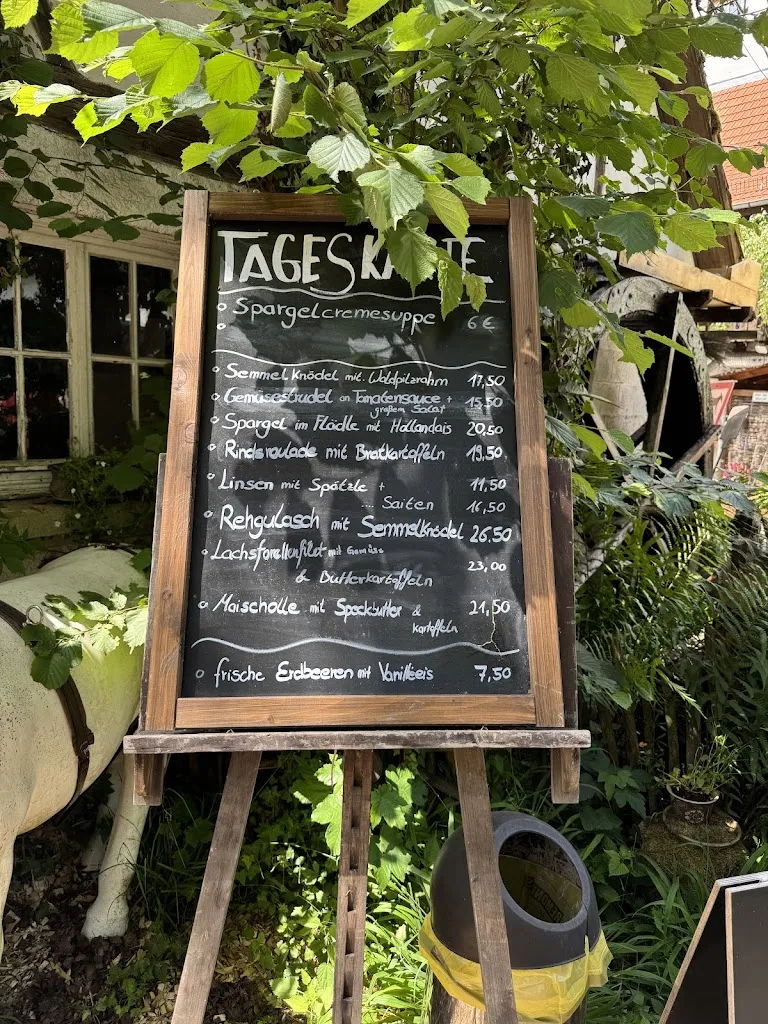 TAGESKARTE
Spargelcremesuppe 6 €
Semmelknödel mit Waldpilzrahm 17,50
Gemüsestrudel an Tomatensauce + 15,50
großem Salat
Spargel im Flädle mit Hollandais 20,50
Rindsroulade mit Bratkartoffeln 19,50
Linsen mit Spätzle + 11,50
.... Saiten 16,50
Rehgulasch mit Semmelknödel 26,50
Lachsforellenfilet mit Gemüse
& Butterkartoffeln 23,00
Maischolle mit Speckbutter & 21,50
Kartoffeln
frische Erdbeeren mit Vanilleeis 7,50